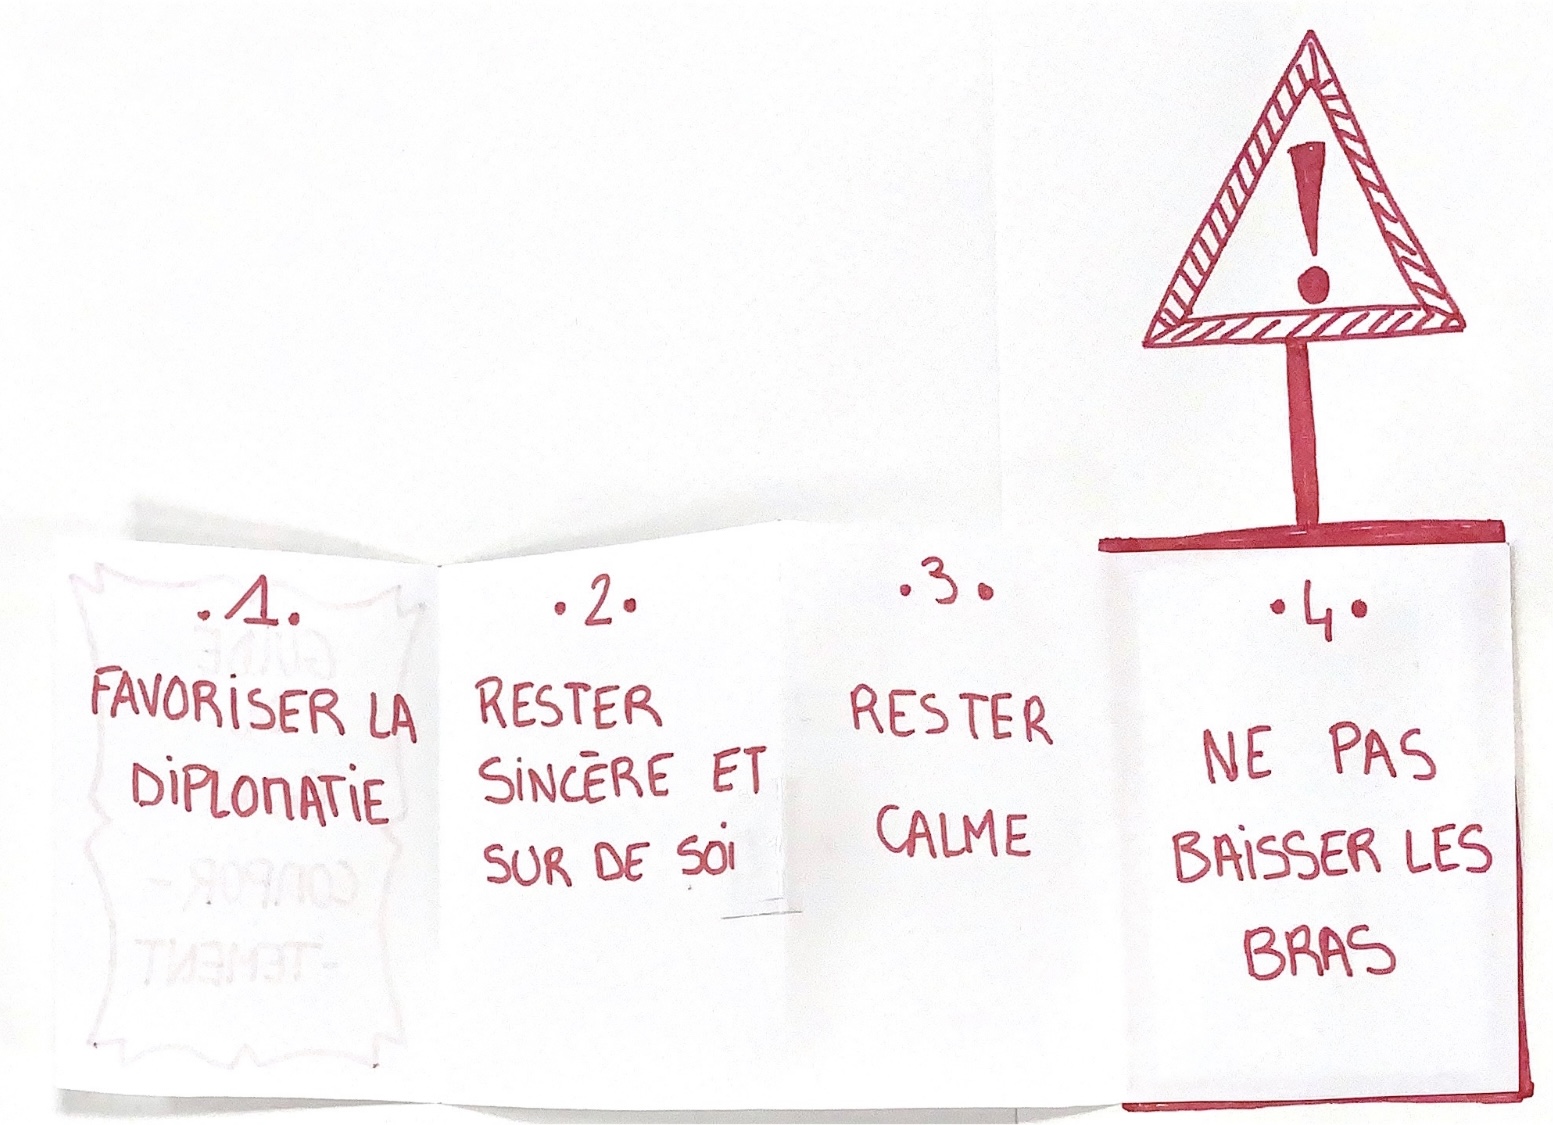 .1.
FAVORISER LA
DIPLOMATIE
.2.
RESTER
SINCÈRE ET
SUR DE SOI
.3.
RESTER
CALME
.4.
NE PAS
BAISSER LES
BRAS
!
GUIDE
COMPOR-
-TEMENT